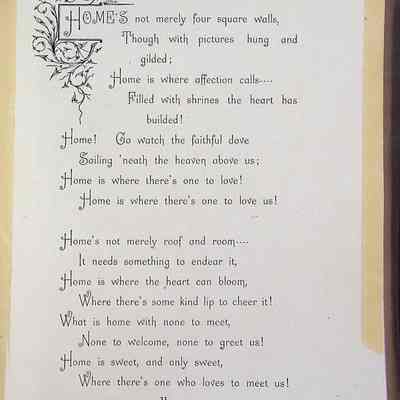 HOME'S not merely four square walls,
Though with pictures hung and
gilded;
Home is where affection calls----
Filled with shrines the heart has
builded!
Home! Go watch the faithful dove
Sailing 'neath the heaven above us;
Home is where there's one to love!
Home is where there's one to love us!
Home's not merely roof and room----
It needs something to endear it,
Home is where the heart can bloom,
Where there's some kind lip to cheer it!
What is home with none to meet,
None to welcome, none to greet us!
Home is sweet, and only sweet,
Where there's one who loves to meet us!